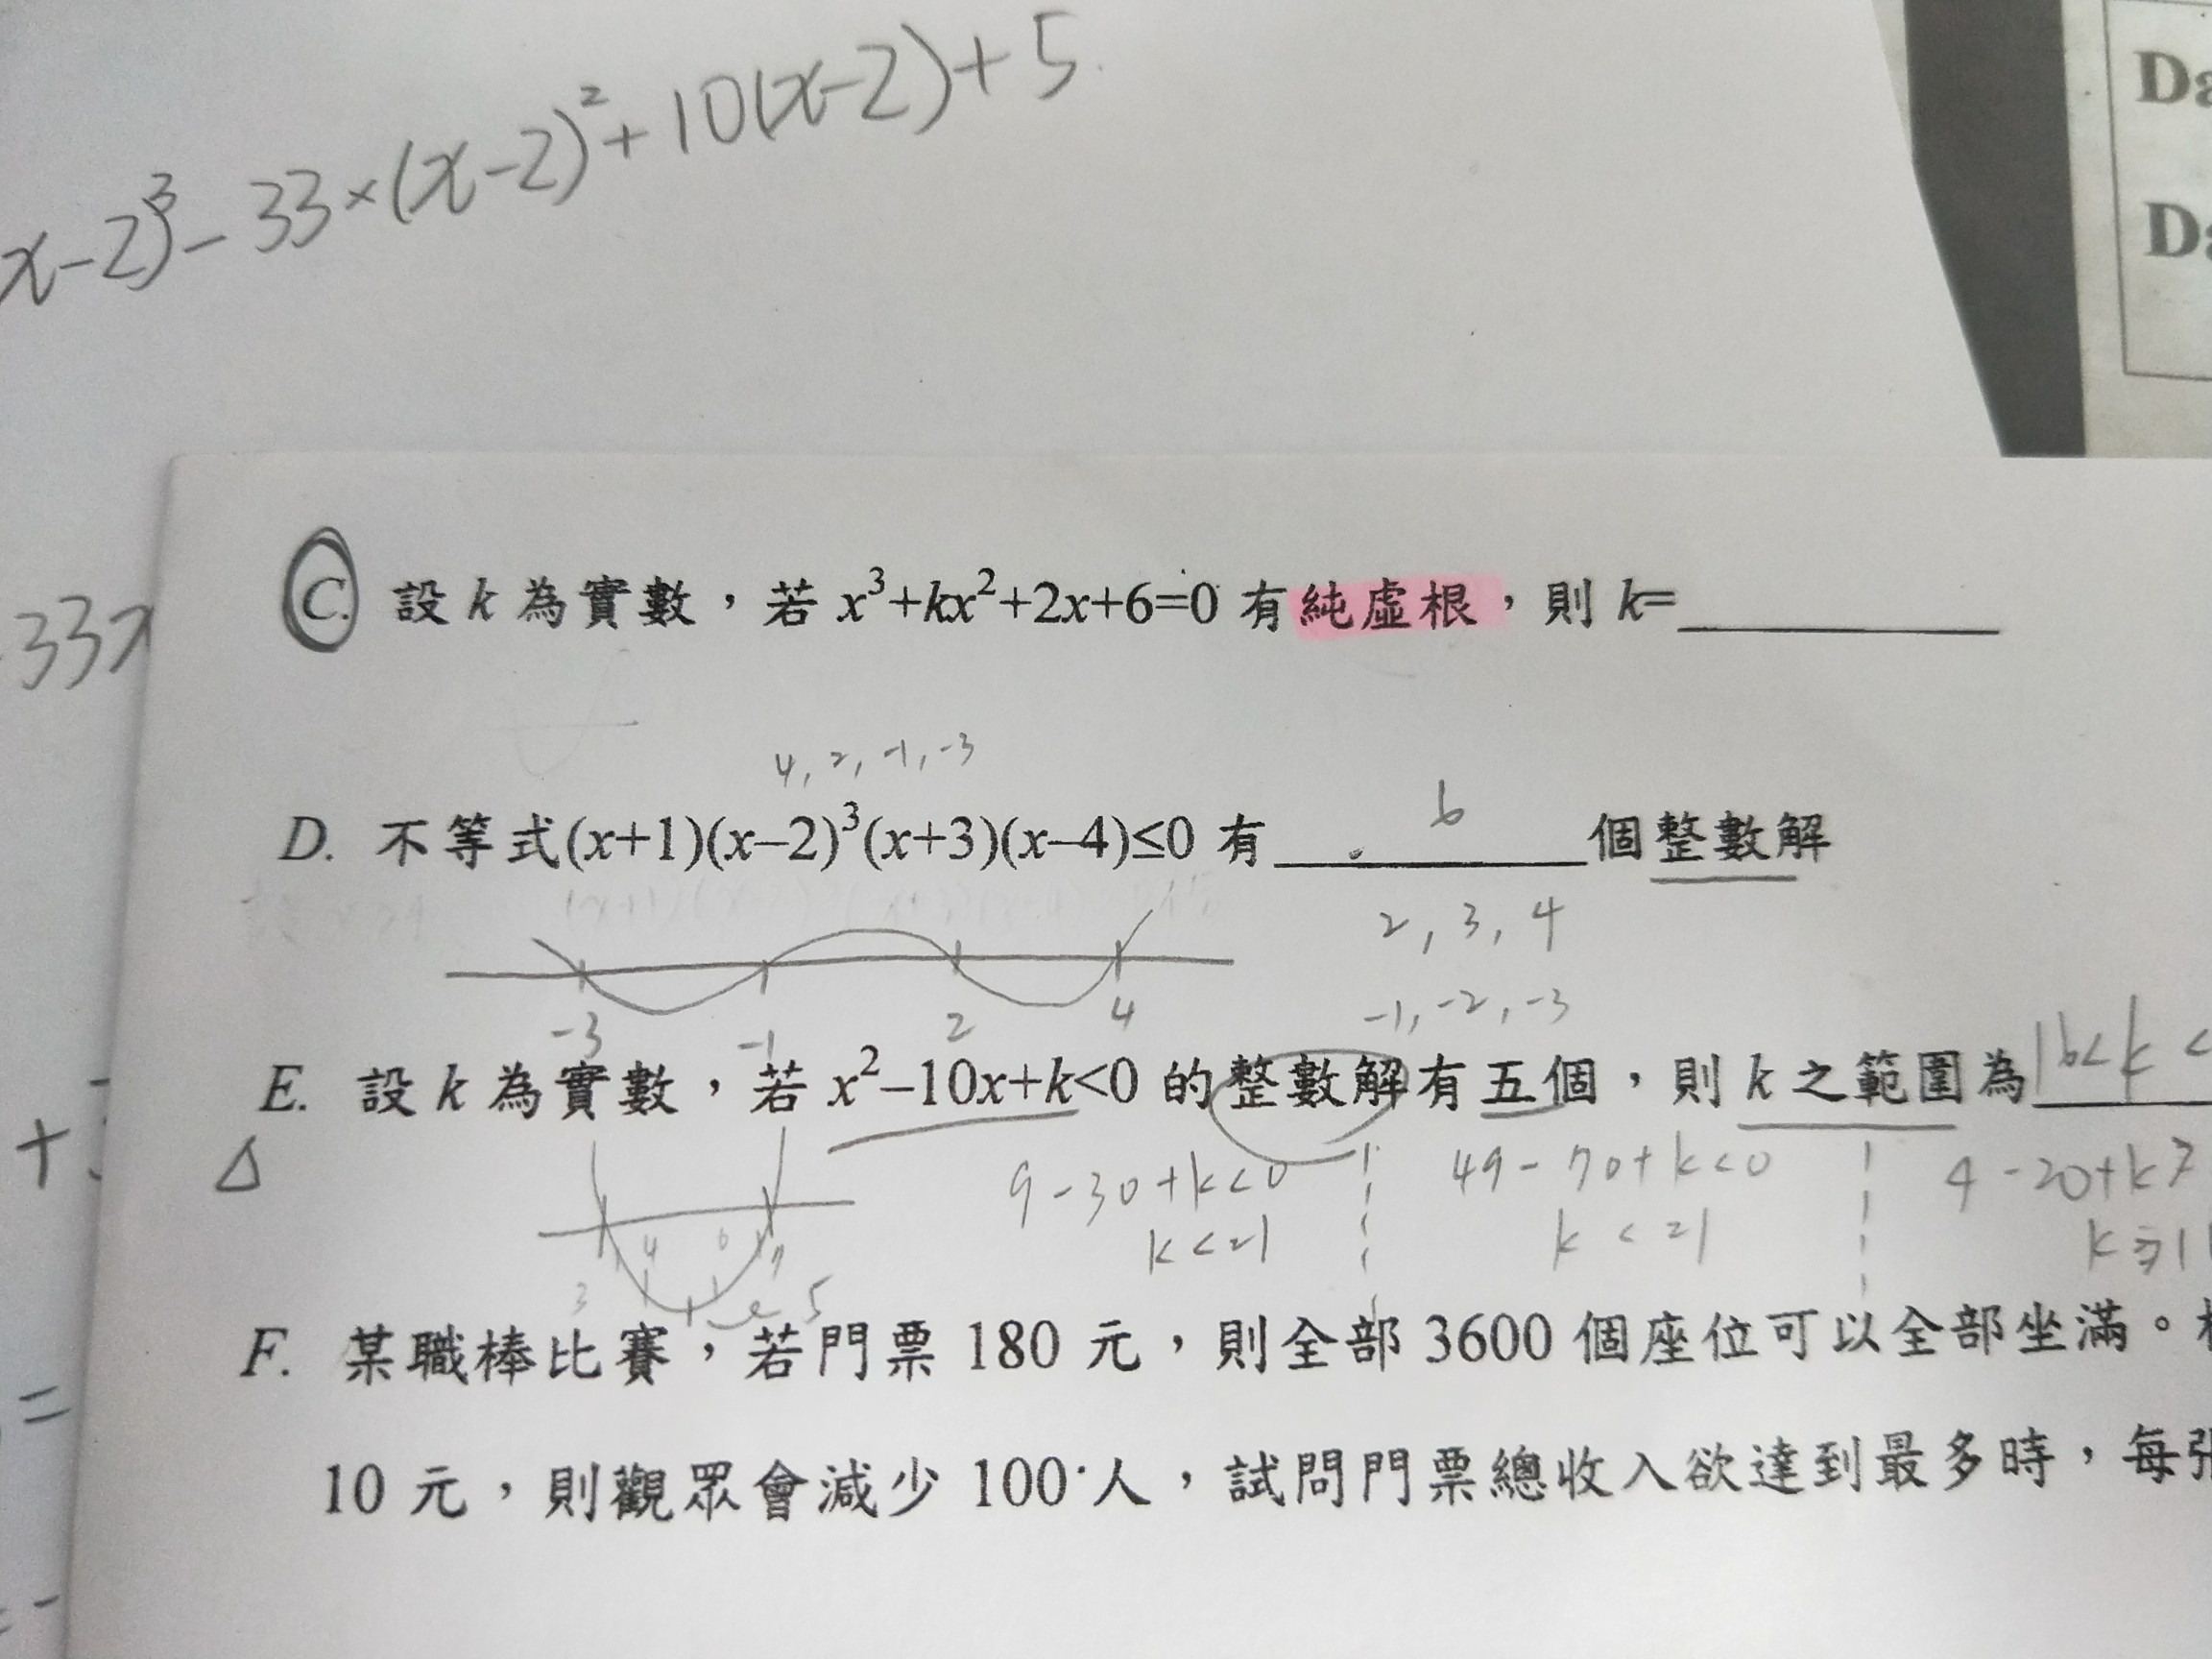 x-2)³-33×(x-2)²+10(x-2)+5
Da
Da
33x
C. 設 k 為實數，若 x³+kx²+2x+6=0 有純虛根，則 k=
4, 2, -1, -3
D. 不等式(x+1)(x–2)³(x+3)(x–4)≤0 有 6 個整數解
2, 3, 4
-3 -1 2 4
-1, -2, -3
E. 設 k 為實數，若 x²–10x+k<0 的整數解有五個，則 k 之範圍為 16<k<
△
9-30+k<0
49-70+k<0
4-20+k≥
k<21
k<21
3 4 6 7
5
F. 某職棒比賽，若門票 180 元，則全部 3600 個座位可以全部坐滿。
10 元，則觀眾會減少 100 人，試問門票總收入欲達到最多時，每張